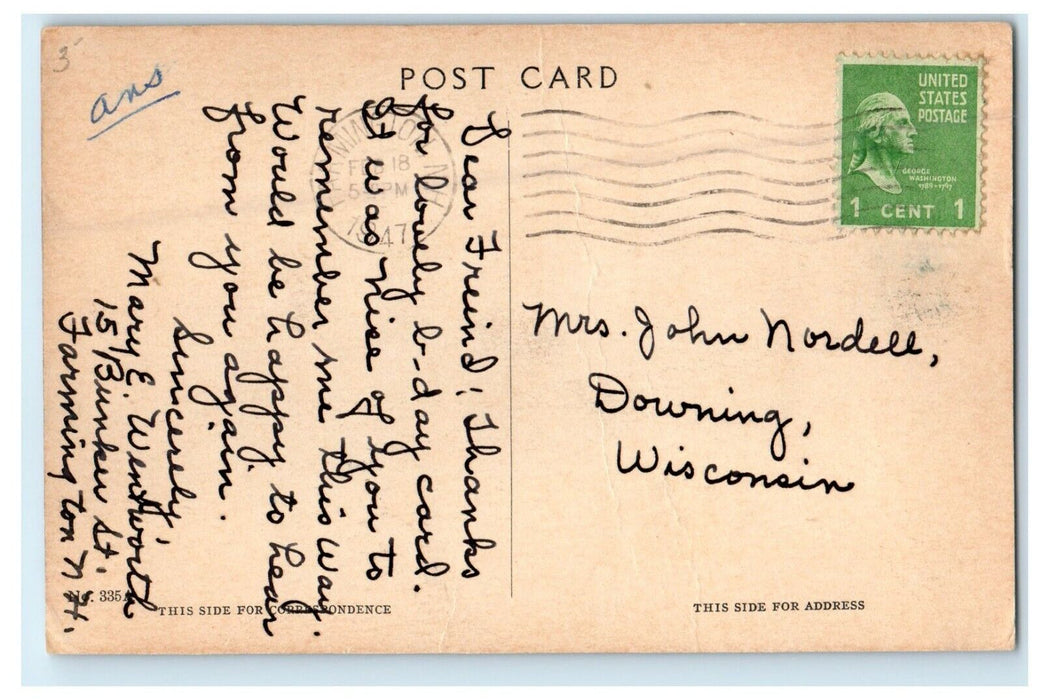 3
ans
POST CARD
UNITED
STATES
POSTAGE
GEORGE
WASHINGTON
1789-1797
1 CENT 1
FARMINGTON N.H.
FEB 18
5 PM
1947
Dear Freind; Thanks
for lovely b-day card.
It was nise of you to
remember me this way.
Would be happy to hear
from you again.
Sincerely,
Mary E. Wentworth
15 Bunker St.
Farmington N.H.
Mrs. John Nordell,
Downing,
Wisconsin
No. 335
THIS SIDE FOR CORRESPONDENCE
THIS SIDE FOR ADDRESS